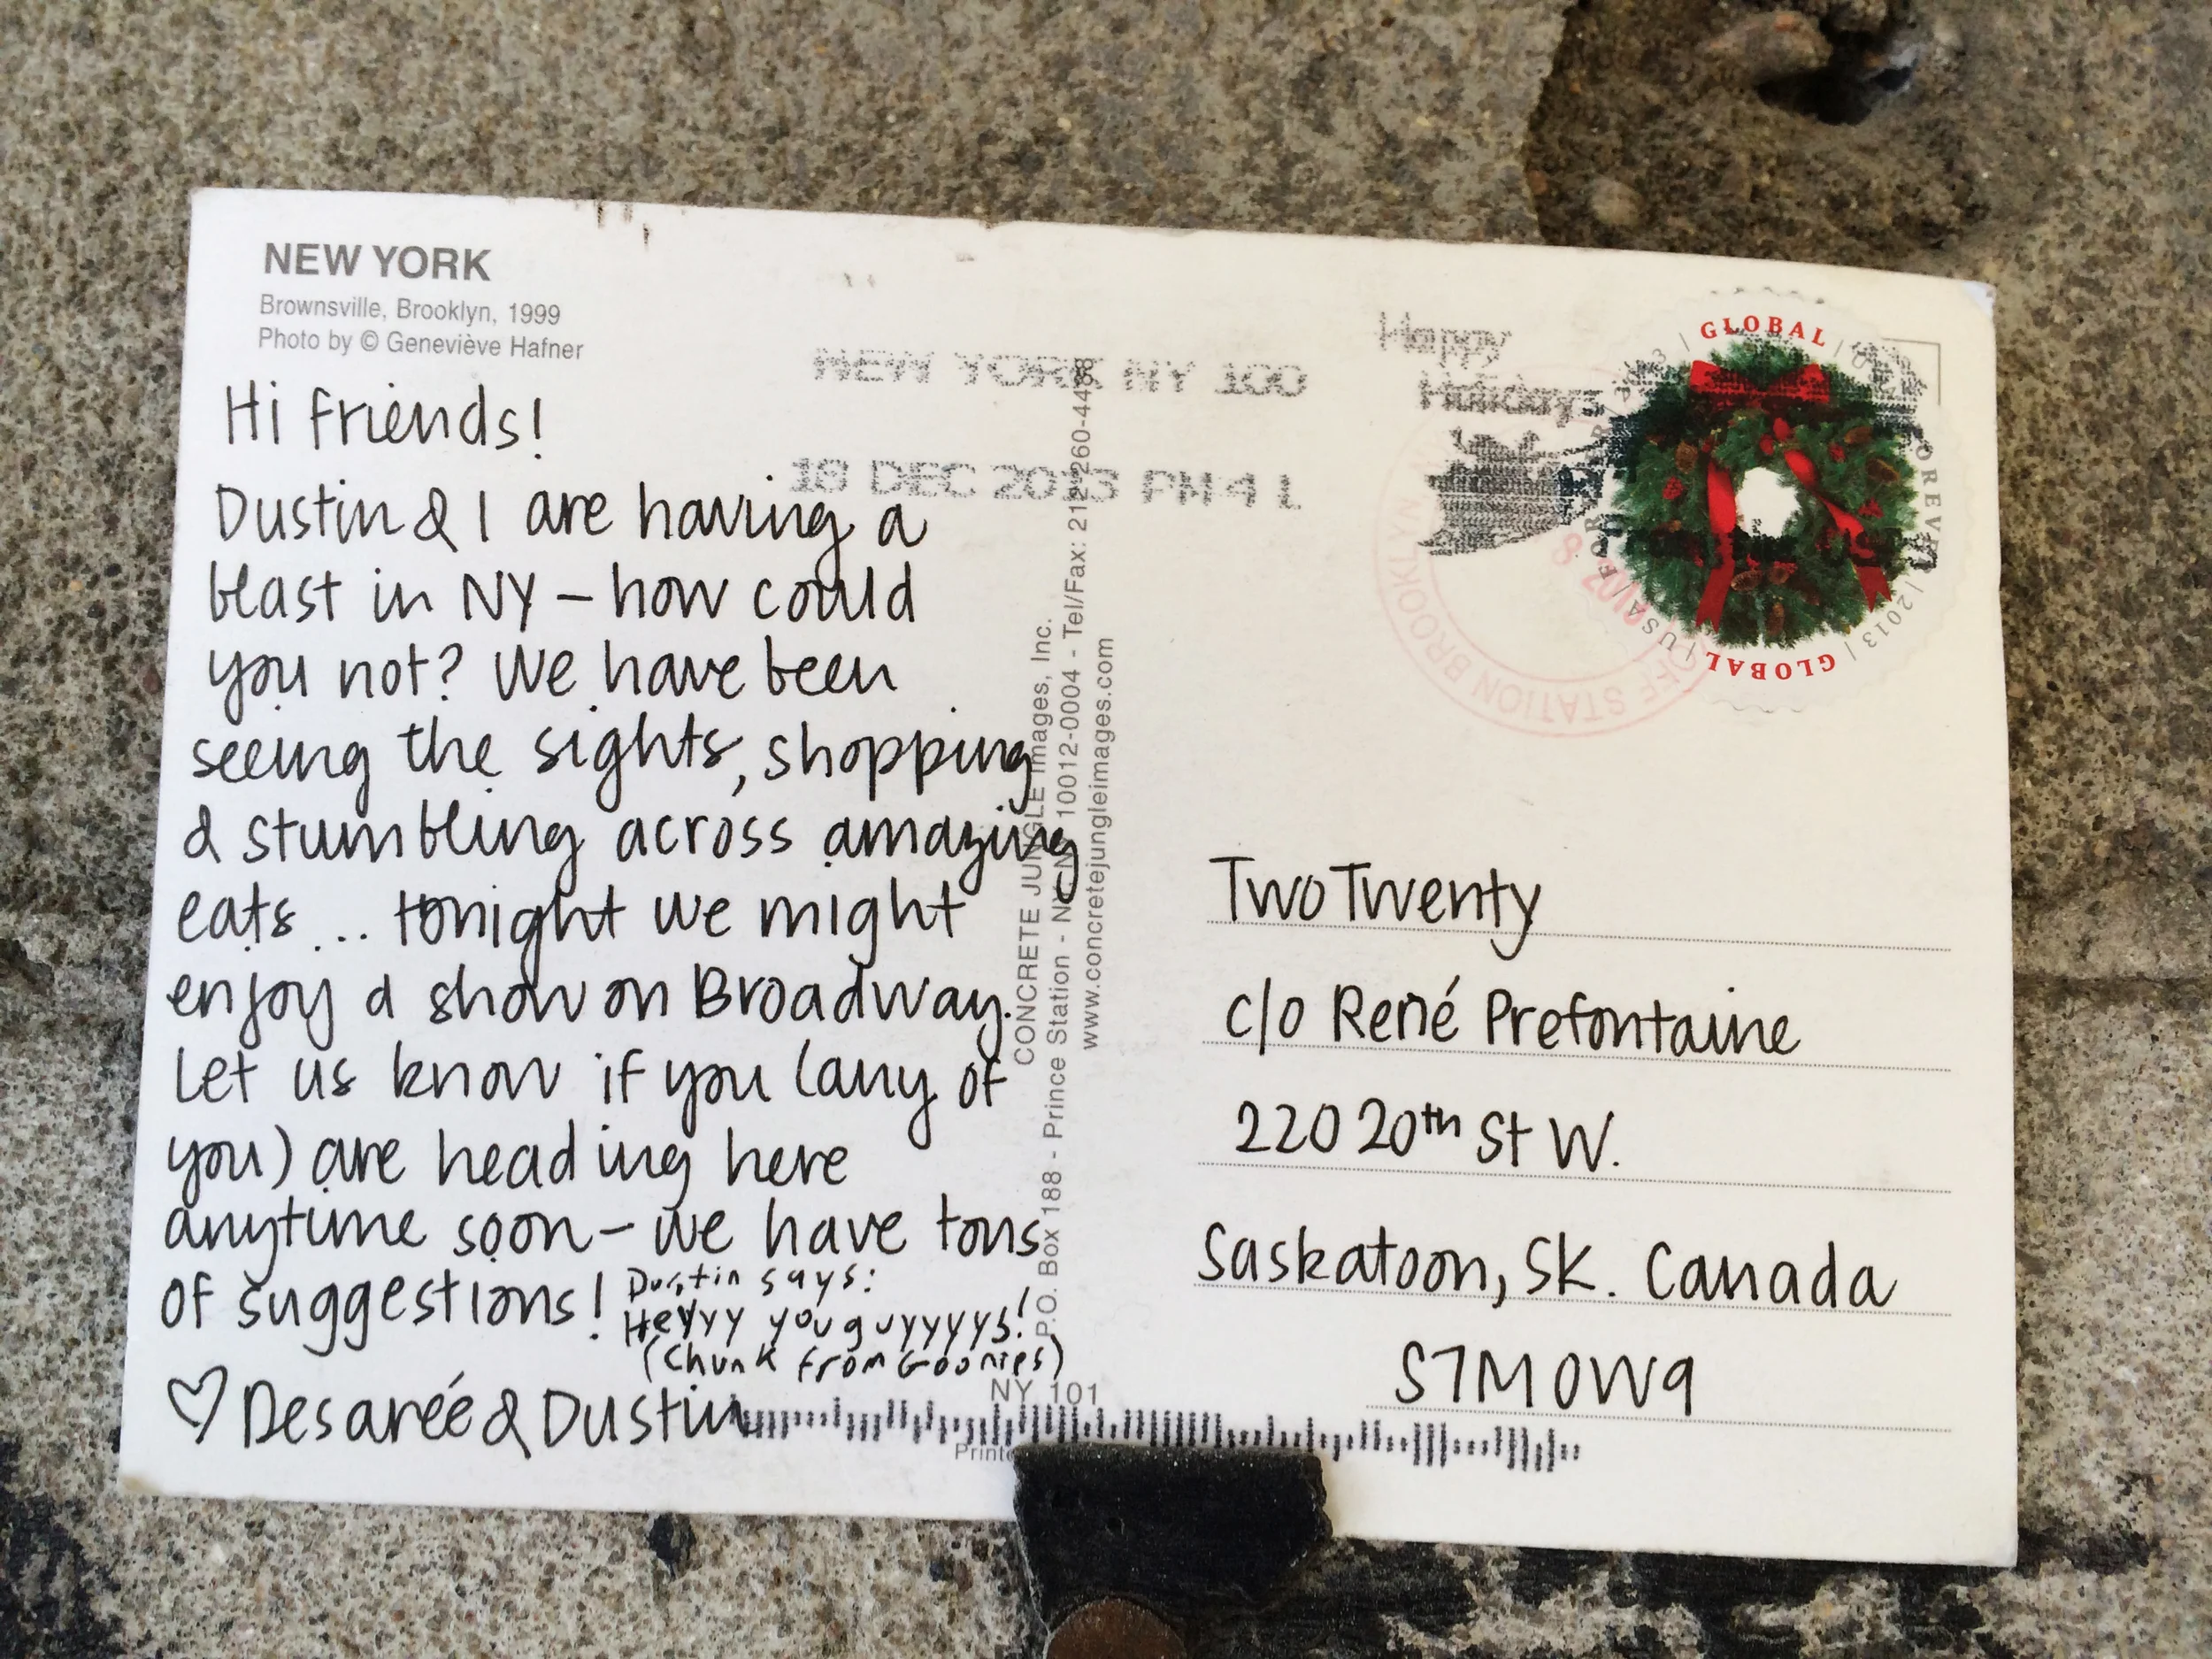 NEW YORK
Brownsville, Brooklyn, 1999
Photo by © Geneviève Hafner
Hi friends!
Dustin & I are having a
blast in NY – how could
you not? We have been
seeing the sights, shopping
& stumbling across amazing
eats... tonight we might
enjoy a show on Broadway.
Let us know if you (any of
you) are heading here
anytime soon – we have tons
of suggestions!
Dustin says:
Heyyy you guyyyys!
(Chunk from Goonies)
♡ Desareé & Dustin
CONCRETE JUNGLE Images, Inc.
P.O. Box 188 - Prince Station - NY, NY 10012-0004 - Tel/Fax: 212-260-4488
www.concretejungleimages.com
NY 101
NEW YORK NY 100
18 DEC 2013 PM 4 L
Happy
Holidays
GLOBAL
FOREVER
2013
GLOBAL
USA
STATION BROOKLYN
Two Twenty
c/o René Prefontaine
220 20th St W.
Saskatoon, SK. Canada
S7M 0W9